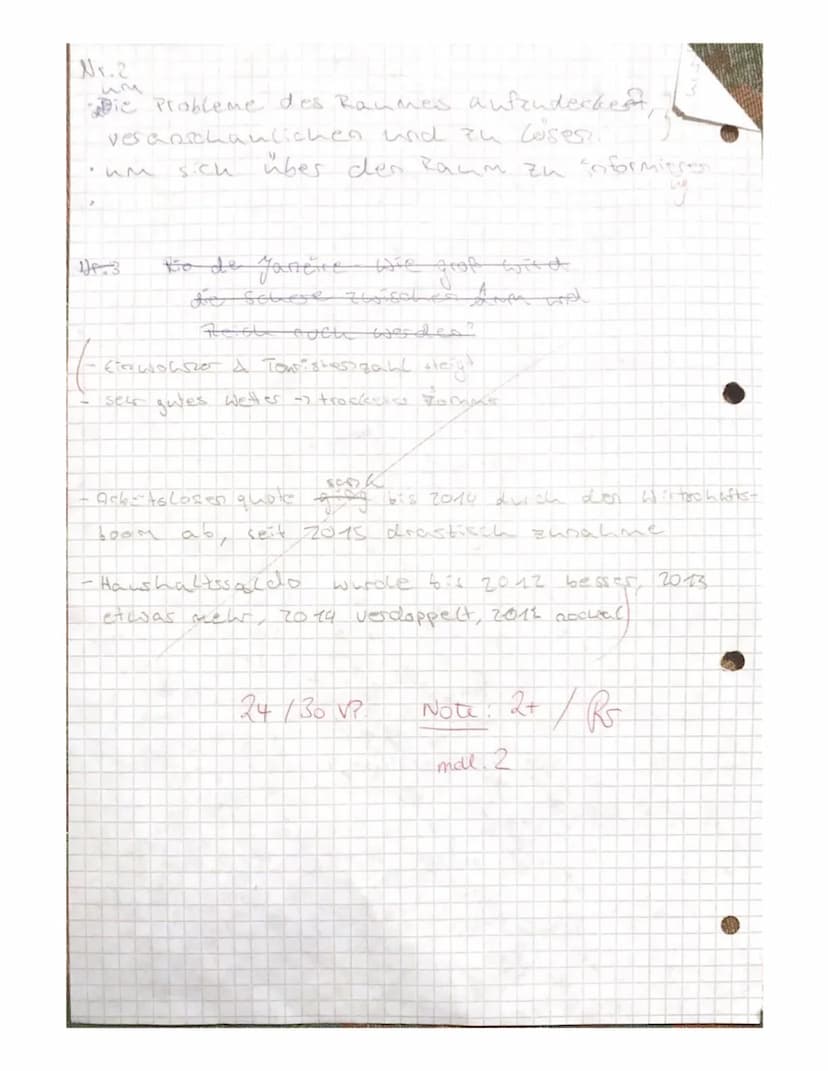 Nr. 2
um
Die Probleme des Raumes aufzudecken,
veranschaulichen und zu lösen.
· um sich über den Raum zu informieren
Nr. 3 Rio de Janeiro - Wie groß wird
die Schere zwischen Arm und
Reich noch werden?
- Einwohner & Touristenzahl steigt
- sehr gutes Wetter -> trockener
sank
- Arbeitslosenquote ging bis 2014 durch den Wirtschafts-
boom ab, seit 2015 drastisch zunahme
- Haushaltssaldo wurde bis 2012 besser, 2013
etwas mehr, 2014 verdoppelt, 2012 nochmal
24 / 30 VP Note: 2+ / Rs
mdl. 2